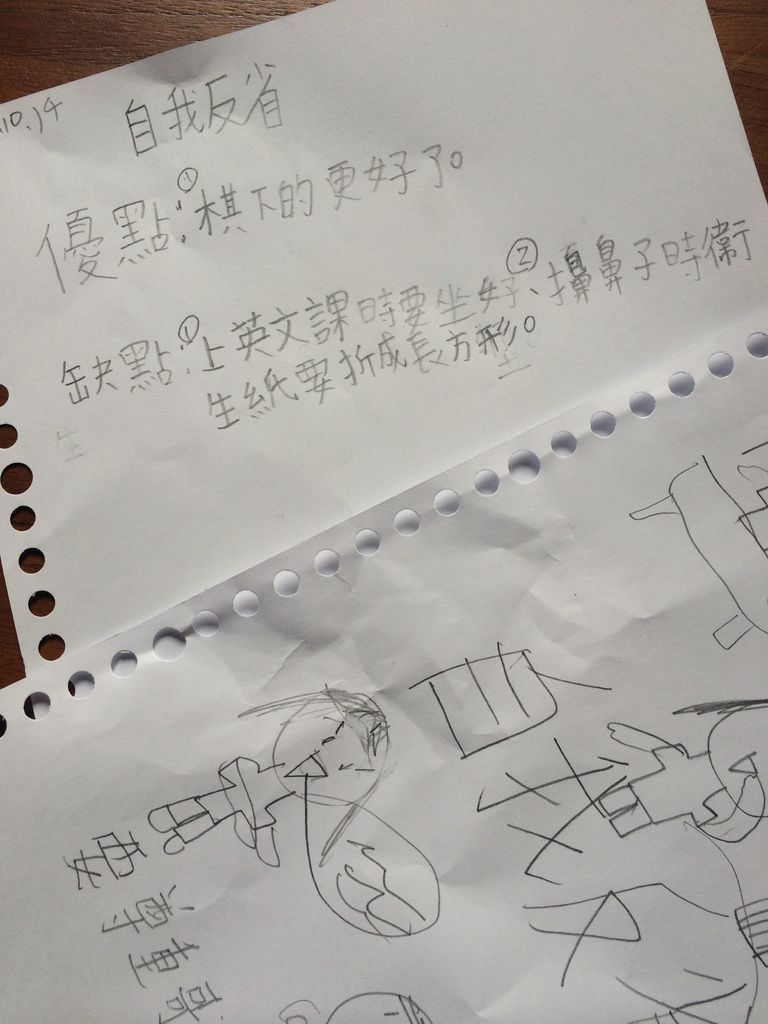 10.14
自我反省
優點:①棋下的更好了。
缺點:①上英文課時要坐好、②擤鼻子時衛
生紙要折成長方形。
生
要
尊重哥